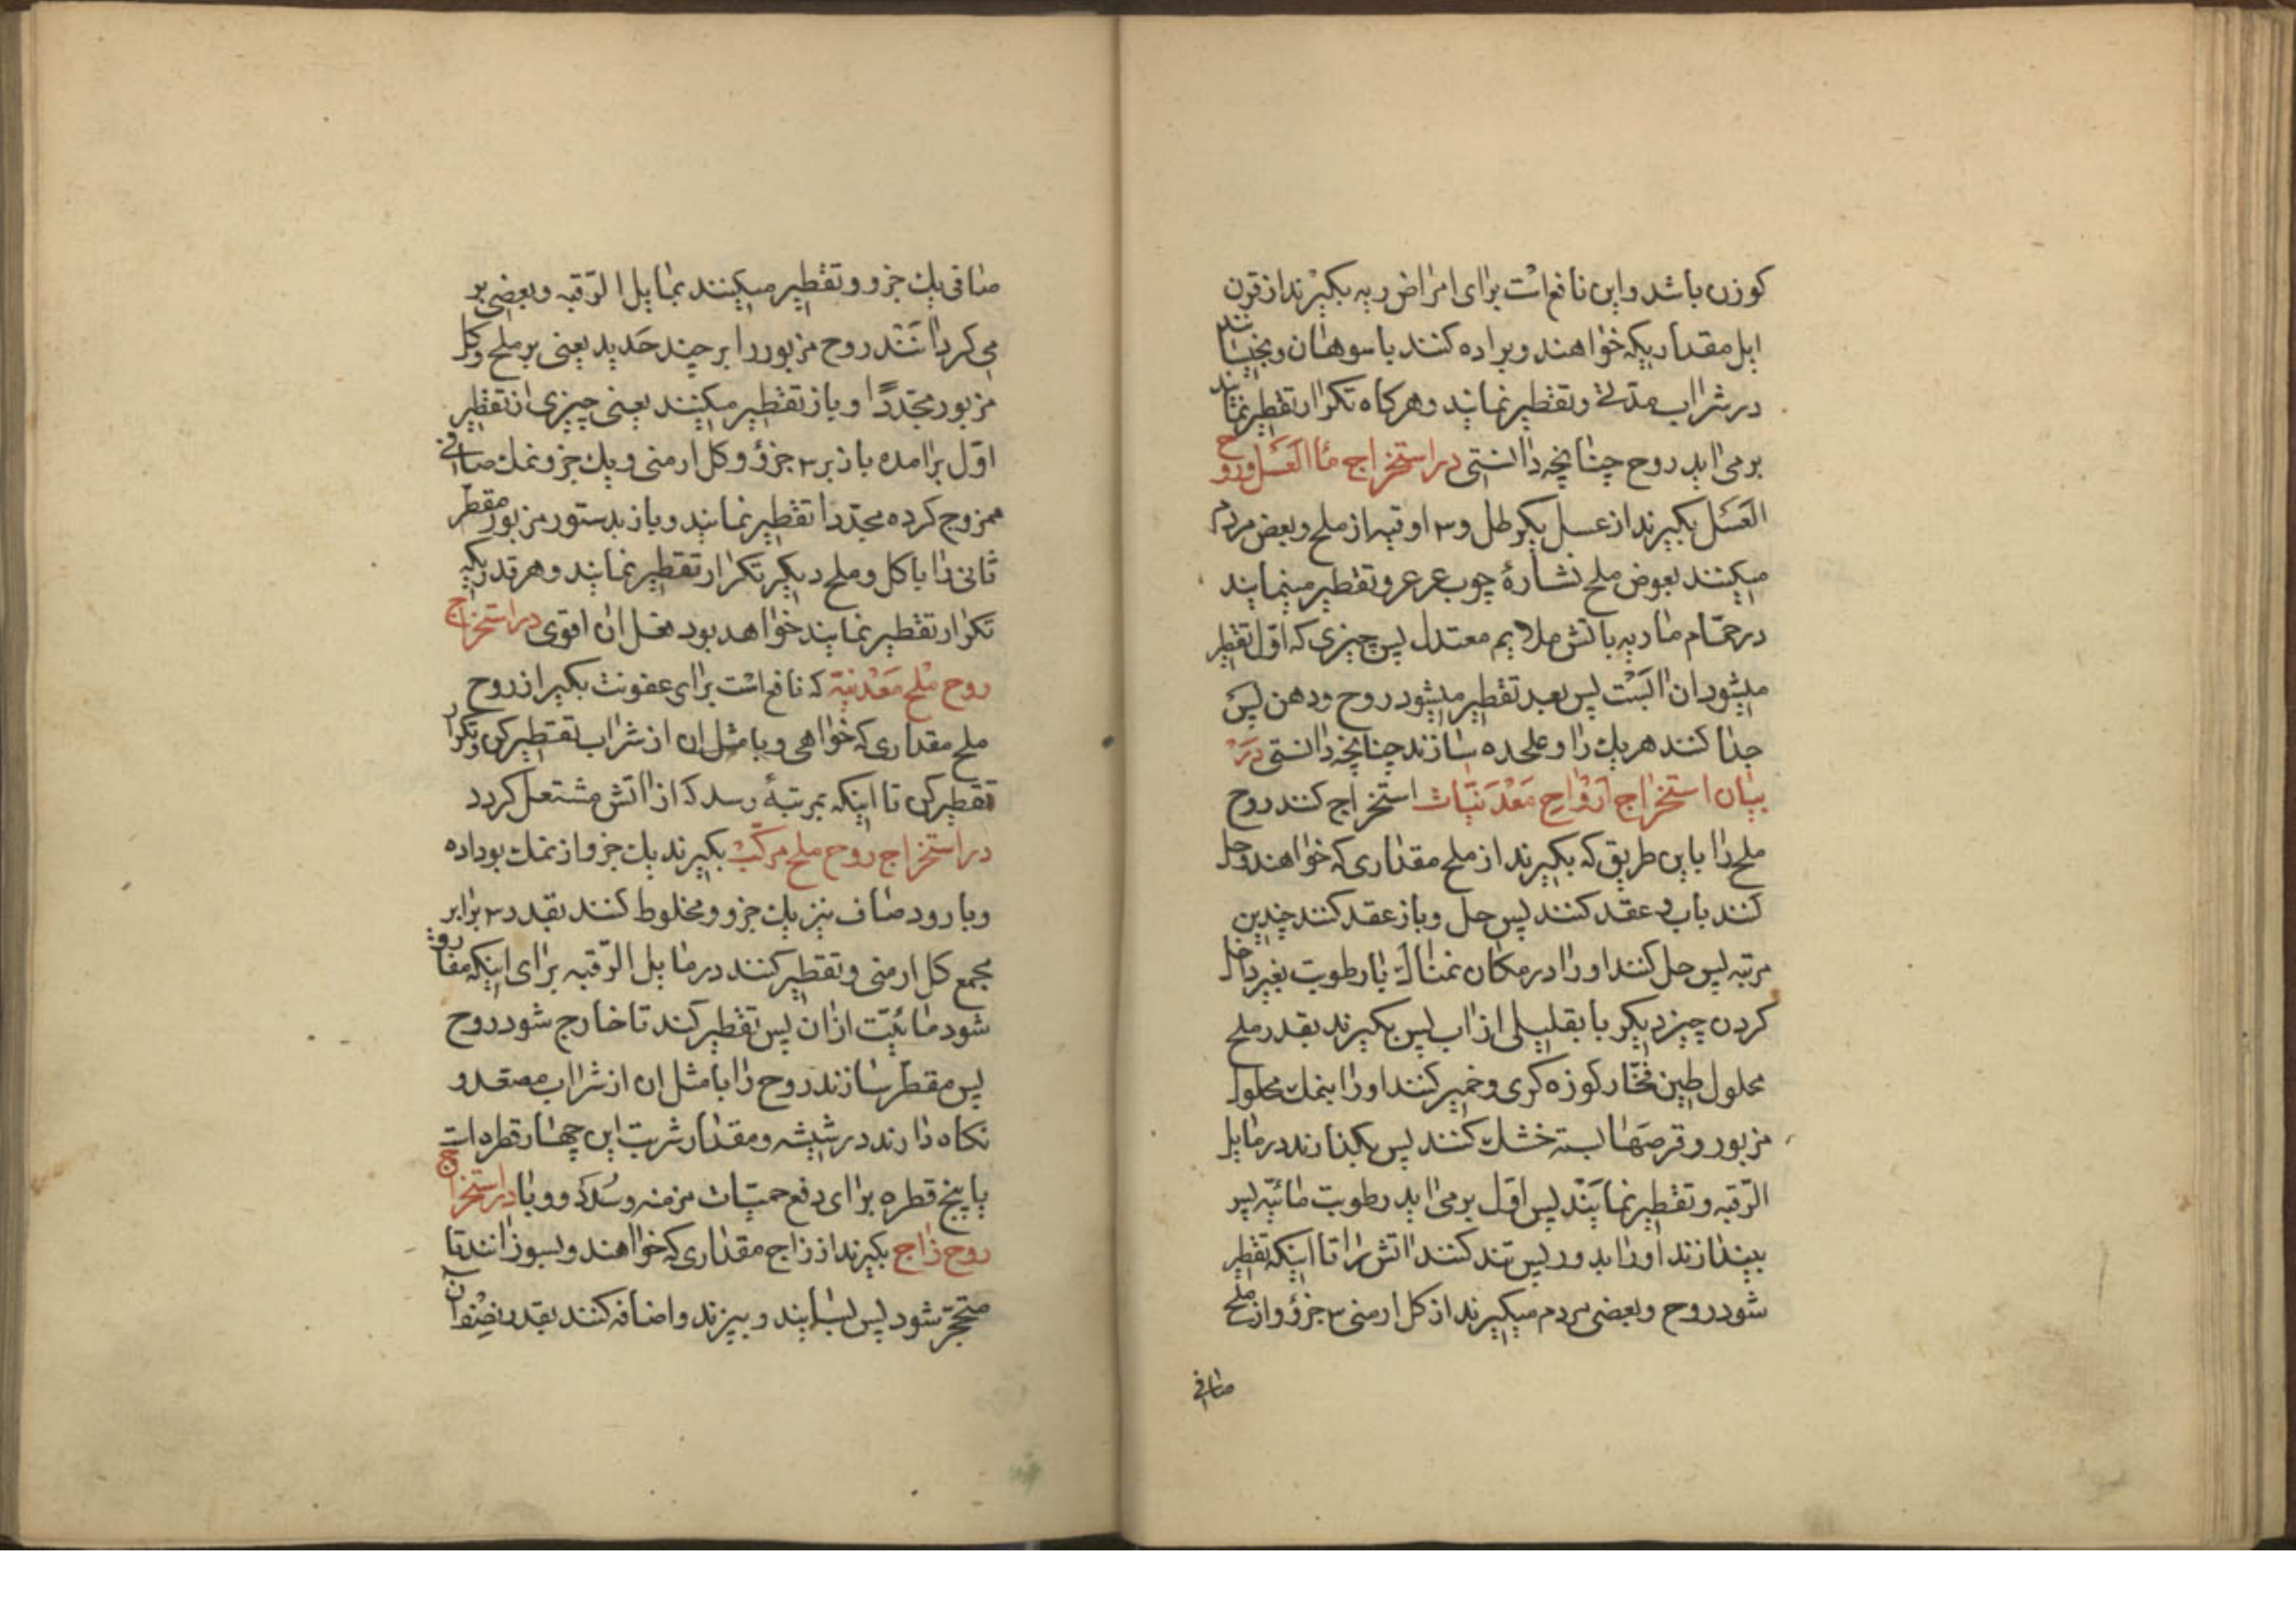 کوزن باشد واین نافع است برای امراض ریه بکیرند از قرن
ایل مقداریکه خواهند وبراده کنند با سوهان وبخیسانند
در شراب مدتی وتقطیر نمایند وهرکاه تکرار تقطیر نمایند
برمی اید روح چنانچه دانستی در استخراج ماا العسل وروح
العسل بکیرند از عسل یکرطل و۳ اوقیه از ملح وبعض مردم
میکنند بعوض ملح نشارهٔ چوب عرعر وتقطیر مینمایند
در حمام ماریه باتش ملایم معتدل پس چیزی که اول تقطیر
میشود ان البست پس بعد تقطیر میشود روح ودهن پس
جدا کنند هریك را وعلحده سازند چنانچه دانستی در
بیان استخراج ارواح معدنیات استخراج کنند روح
ملح را باین طریق که بکیرند از ملح مقداری که خواهند وحل
کنند باب وعقد کنند پس حل وباز عقد کنند چندین
مرتبه پس حل کنند اورا در مکان نمناك با رطوبت بغیر داخل
کردن چیز دیکر یا بقلیلی از اب پس بکیرند بقدر ملح
محلول طین فخار کوزه کری وخمیر کنند اورا بنمك محلول
مزبور وقرصها بسته خشك کنند پس بکذارند در مایل
الرقبه وتقطیر نمایند پس اول برمی اید رطوبت مائیه پس
بیندازند اورا بدور پس تند کنند اتش را تا اینکه تقطیر
شود روح وبعضی مردم میکیرند از کل ارمنی ۳ جزؤ واز ملح
صافی
صافی یك جزو وتقطیر میکنند بمایل الرقبه وبعضی بر
می کردانند روح مزبور را بر چند حدید یعنی بر ملح وکل
مزبور مجددًا وباز تقطیر میکنند یعنی چیزی از تقطیر
اول برامده باز بر ۳ جزؤ وکل ارمنی ویك جزو نمك صافی
ممزوج کرده مجددا تقطیر نمایند وباز بدستور مزبور مقطر
ثانی را با کل وملح دیکر تکرار تقطیر نمایند وهر قدریکه
تکرار تقطیر نمایند خواهد بود فعل ان اقوی در استخراج
روح ملح معدنیة که نافع است برای عفونت بکیر از روح
ملح مقداری که خواهی وبا مثل ان از شراب تقطیر کن وتکرار
تقطیر کن تا اینکه بمرتبهٔ رسد که از اتش مشتعل کردد
در استخراج روح ملح مرکب بکیرند یك جزو از نمك بوداده
وبارود صاف نیز یك جزو ومخلوط کنند بقدر ۳ برابر
مجمع کل ارمنی وتقطیر کنند در مایل الرقبه برای اینکه مفارق
شود مائیت از ان پس تقطیر کند تا خارج شود روح
پس مقطر سازند روح را با مثل ان از شراب مصعد و
نکاه دارند در شیشه ومقدار شربت این چهار قطره است
یا پنج قطره برای دفع حمیات مزمنه وسُدَد ووبا در استخراج
روح زاج بکیرند از زاج مقداری که خواهند وبسوزانند تا
متحجر شود پس بسایند وبیزند واضافه کنند بقدر نصف ان